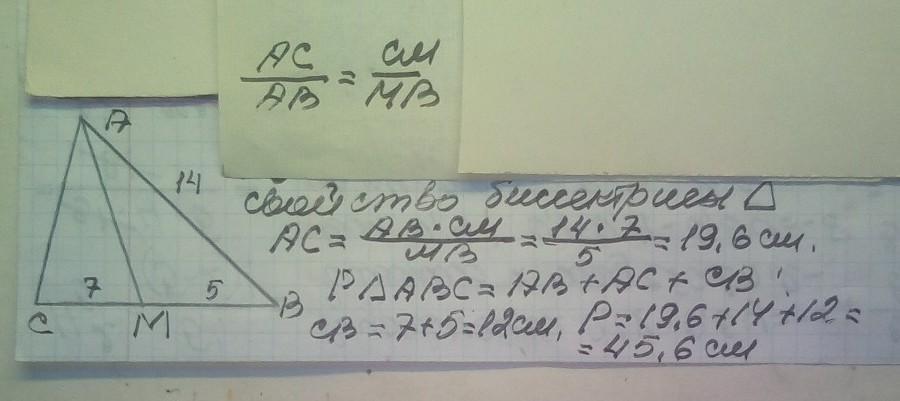 AC/AB = CM/MB
A
14
7
5
C
M
B
свойство биссектрисы △
AC = AB·CM/MB = 14·7/5 = 19,6 см.
P△ABC = AB + AC + CB
CB = 7+5 = 12 см, P = 19,6 + 14 + 12 =
= 45,6 см